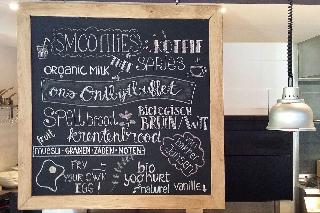 SMOOTHIES & KOFFIE
organic MILK THEE SAPJES
ons Ontbijtbuffet
Speltbrood BIOLOGISCH
BRUIN/WIT
fruit krentenbrood
muesli·GRANEN·ZADEN·NOTEN
FRY bio
YOUR OWN yoghurt
EGG! naturel vanille